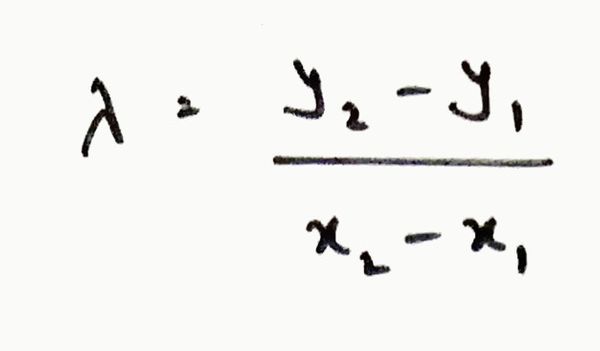 λ = y₂ - y₁
x₂ - x₁